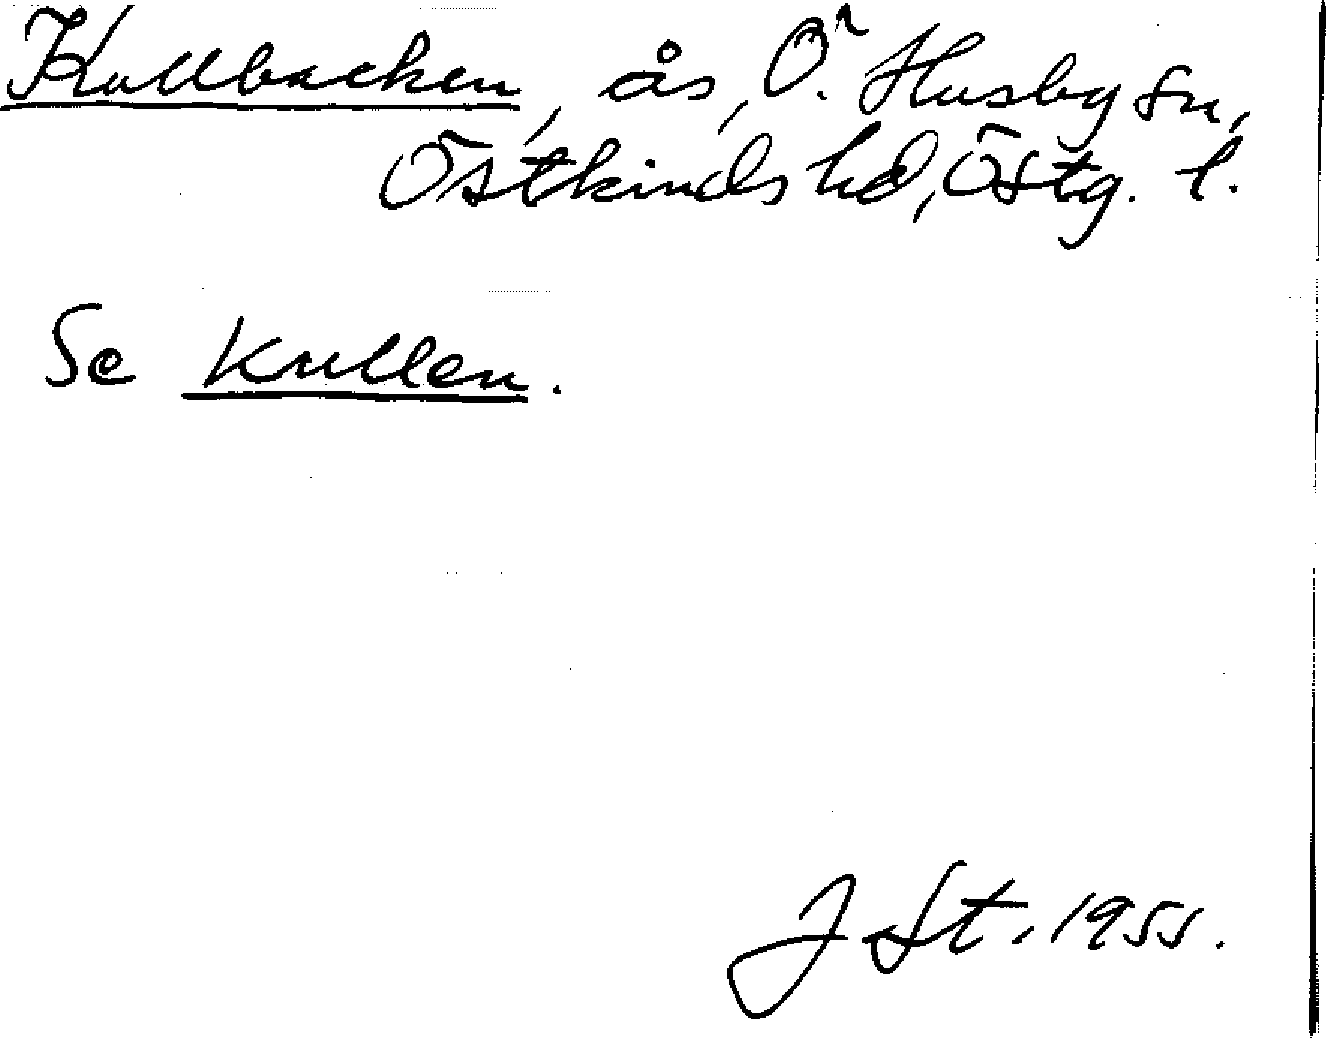 Kullbacken, ås, Ö. Husby sn,
Östkinds hd, Östg. l.
Se Kullen.
J St. 1955.